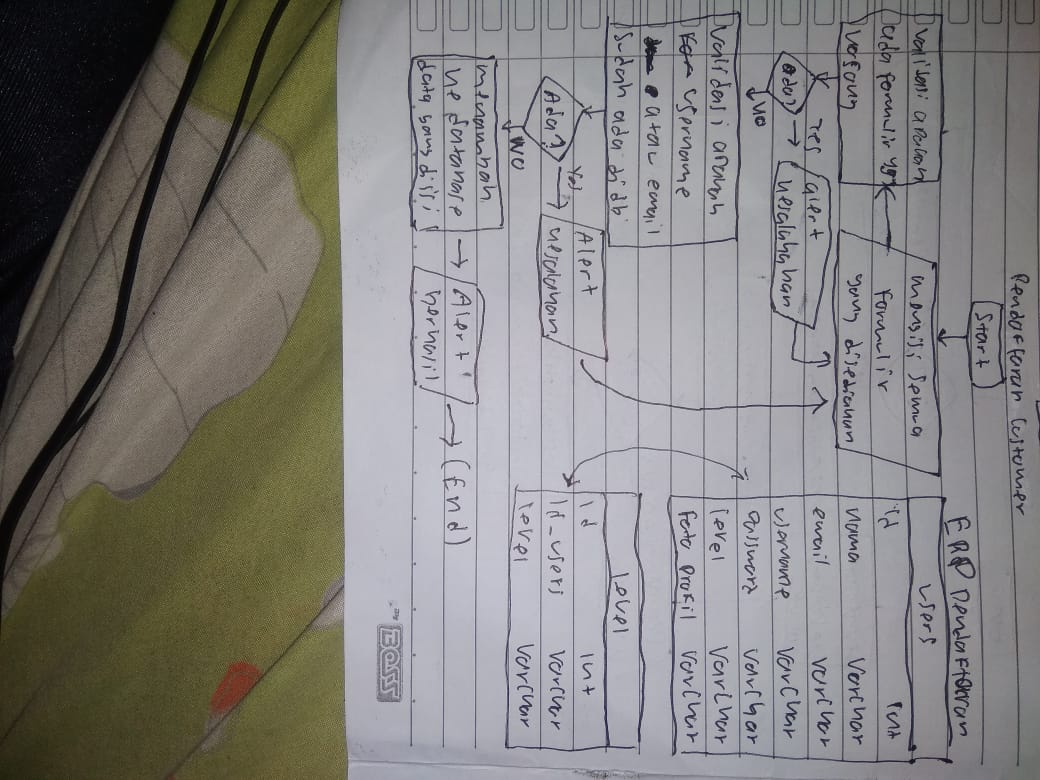 Pendaftaran Customer
Start
mengisi semua
formulir
yang disediakan
validasi apakah
ada formulir yg
kosong
Ada?
Yes
alert
kesalahahan
NO
validasi apakah
username
atau email
sudah ada di db
Ada?
Yes
Alert
kesalahan
NO
menambah
ke database
data yang diisi
Alert
berhasil
(End)
ERD Pendaftaran
users
id int
nama Varchar
email varchar
username varchar
password varchar
level varchar
foto profil varchar
level
id int
id_users varchar
level varchar
BOSS